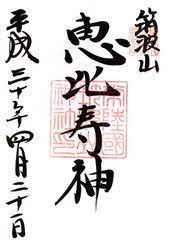 筑波山
恵比寿神
平成三十年四月二十一日